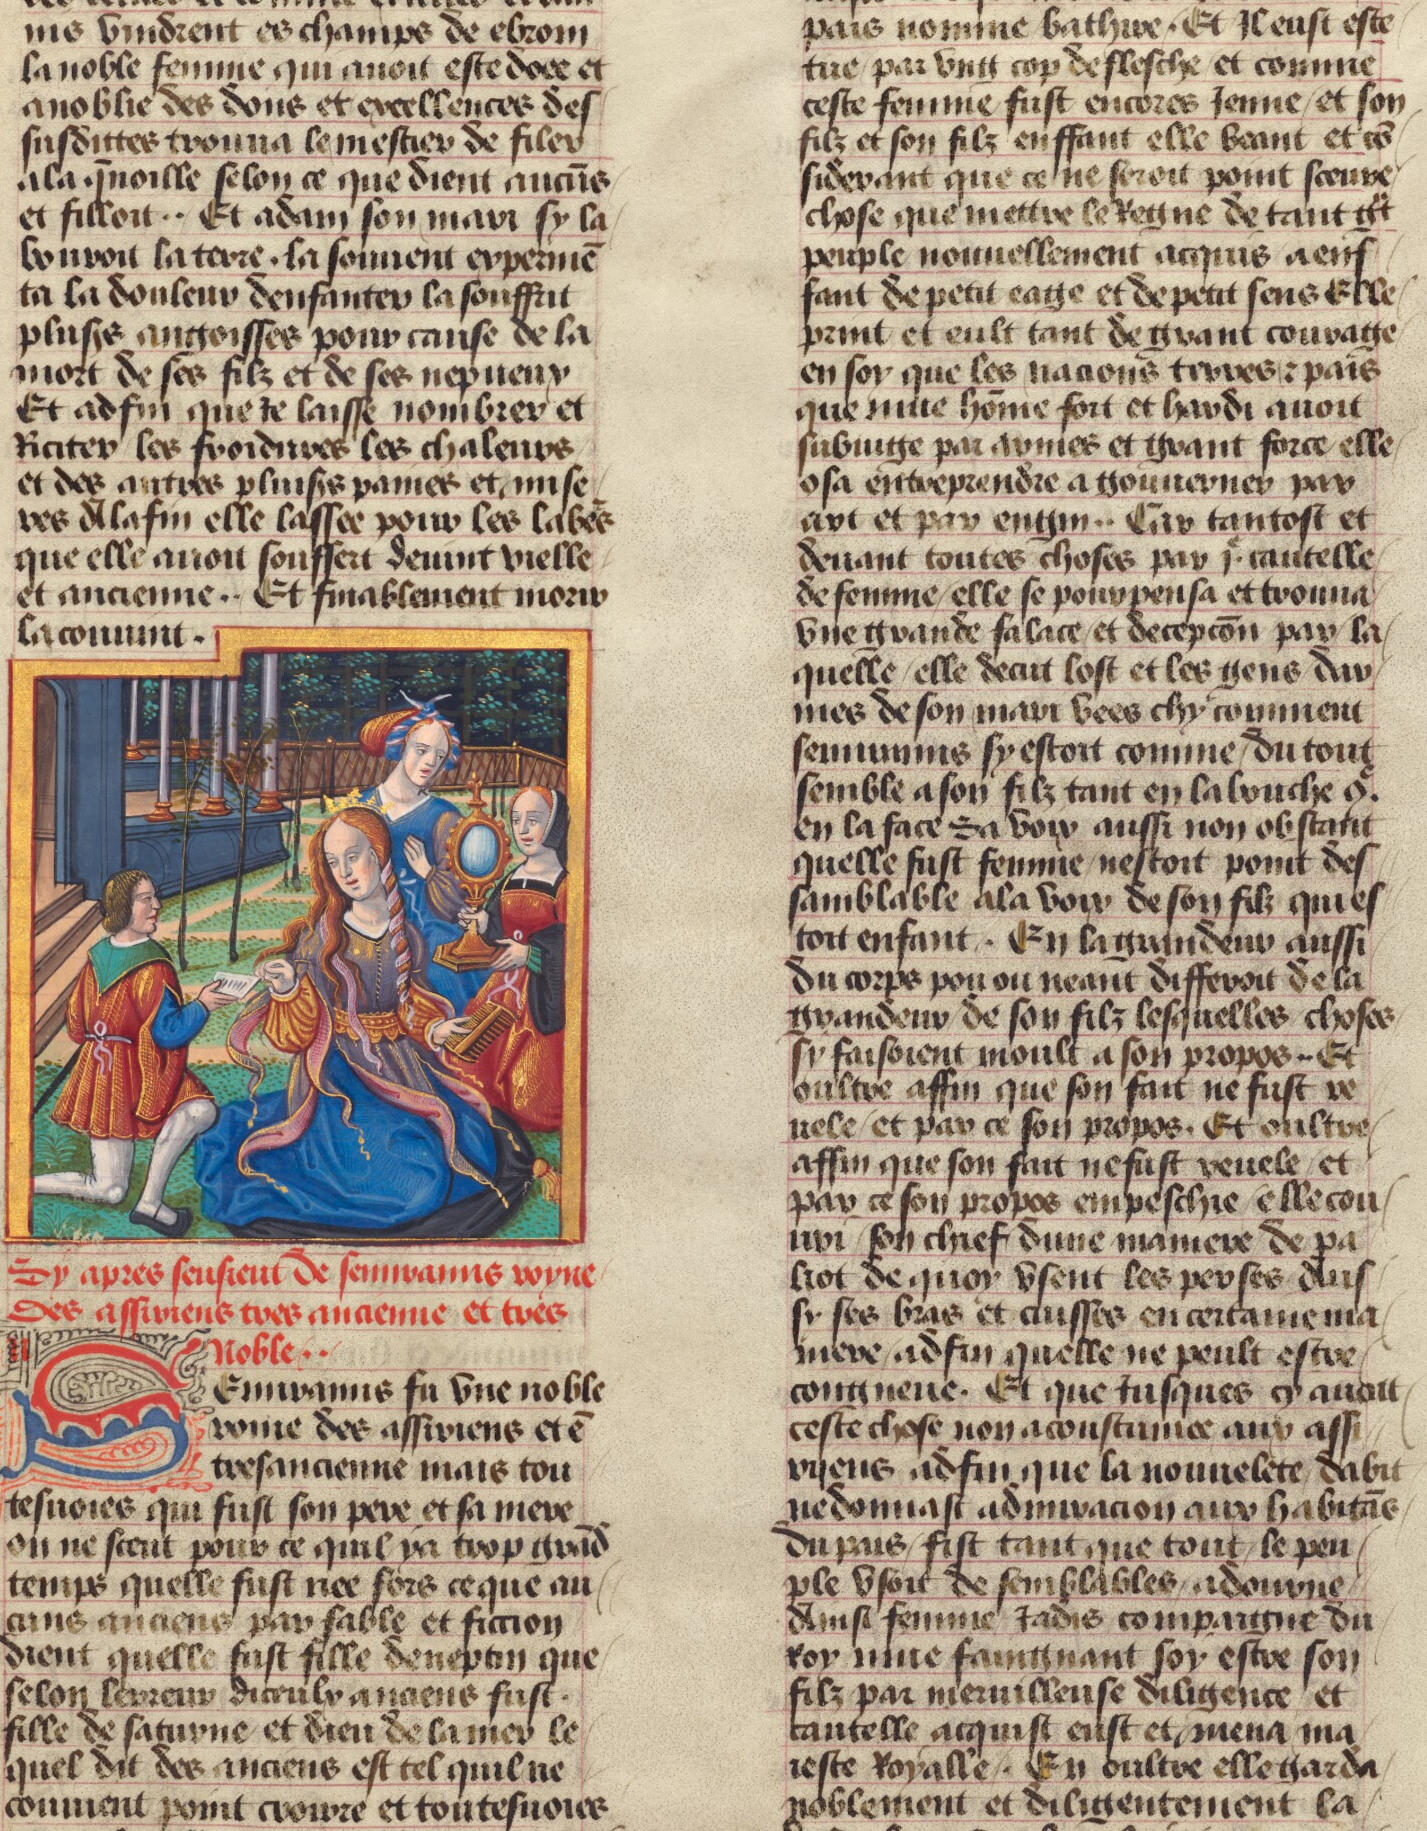 nis vindrent es champs de ebrom
la noble femme qui auoit este doee et
anoblie des dons et excellences des
susdittes trouua le mestier de filer
a la q̄noille selon ce que dient aucūs
et filloit ·· Et adam son mari sy la
bouroit la terre · la souuent experimē
ta la douleur denfanter la souffrit
plusrs angoisses pour cause de la
mort de ses filz et de ses nepueux
Et adfin que Je laisse nombrer et
Reciter les froidures les chaleurs
et des autres plusrs paines et mise
res A la fin elle lassee pour les labēs
que elle auoit souffert deuint vielle
et ancienne ·· Et finablement morir
la conuint ·
Cy apres sensieut de semiramis royne
des assiriens tres ancienne et tres
Noble ··
Semiramis fu vne noble
roine des assiriens et ē
tresancienne mais tou
tesuoies qui fust son pere et sa mere
on ne scent pour ce quil ya trop grād
temps quelle fust nee fors ce que au
cuns anciens par fable et fiction
dient quelle fust fille de neptin que
selon lerreur diceulx anciens fust
fille de saturne et dieu de la mer le
quel dit des anciens est tel quil ne
conuient point croirre et toutesuoies
pais nomme bathire · Et Il eust este
tue par vng cop de flesche et comme
ceste femme fust encores Jenne et son
filz et son filz enffant elle veant et cō
siderant que ce ne seroit point sceure
chose que mettre le Regne de tant gt
peuple nouuellement acquis a enf
fant de petit eage et de petit sens Elle
print et eult tant de grant courage
en soy que les nacions terres et pais
que nine hōme fort et hardi auoit
subiuge par armes et grant force elle
osa entreprendre a gouuerner par
art et par engin ·· Car tantost et
deuant toutes choses par j· cautelle
de femme elle se pourpensa et trouua
vne grande falace et decepcōn par la
quelle elle decut lost et les gens dar
mes de son mari vees chy comment
semiramis sy estoit comme du tout
semble a son filz tant en la bouche q̄
en la face Sa voix aussi non obstant
quelle fust femme nestoit point des
samblable a la voix de son filz qui es
toit enfant · En la grandeur aussi
du corps pou ou neant differoit de la
grandeur de son filz lesquelles choses
sy faisoient moult a son propos ·· Et
oultre affin que son fait ne fust re
uele et par ce son propos · Et oultre
affin que son fait ne fust reuele et
par ce son propos empeschie elle cou
uri son chief dune maniere de pa
liot de quoy vsent les perses Ains
sy ses bras et cuisses en certaine ma
niere adfin quelle ne peult estre
congneue · Et que Jusques cy auoit
ceste chose non acoustumee aux assi
riiens adfin que la nouuelete dabit
ne donnast admiracion aux habitās
du pais fist tant que tout le peu
ple vsoit de semblables adourne
Ainsi femme Jadis compaigne du
Roy nine faingnant soy estre son
filz par meruilleuse diligence et
cautelle acquist eust et mena ma
ieste Royalle ·· En oultre elle garda
noblement et diligentement la